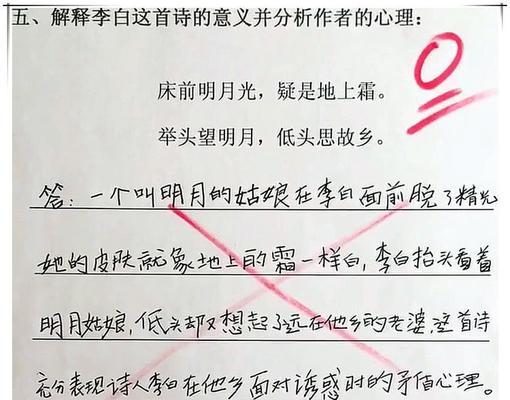 五、解释李白这首诗的意义并分析作者的心理：
床前明月光，疑是地上霜。
举头望明月，低头思故乡。
答：一个叫明月的姑娘在李白面前脱了精光
她的皮肤就象地上的霜一样白，李白抬头看着
明月姑娘，低头却又想起了远在他乡的老婆，这首诗
充分表现诗人李白在他乡面对诱惑时的矛盾心理。
0